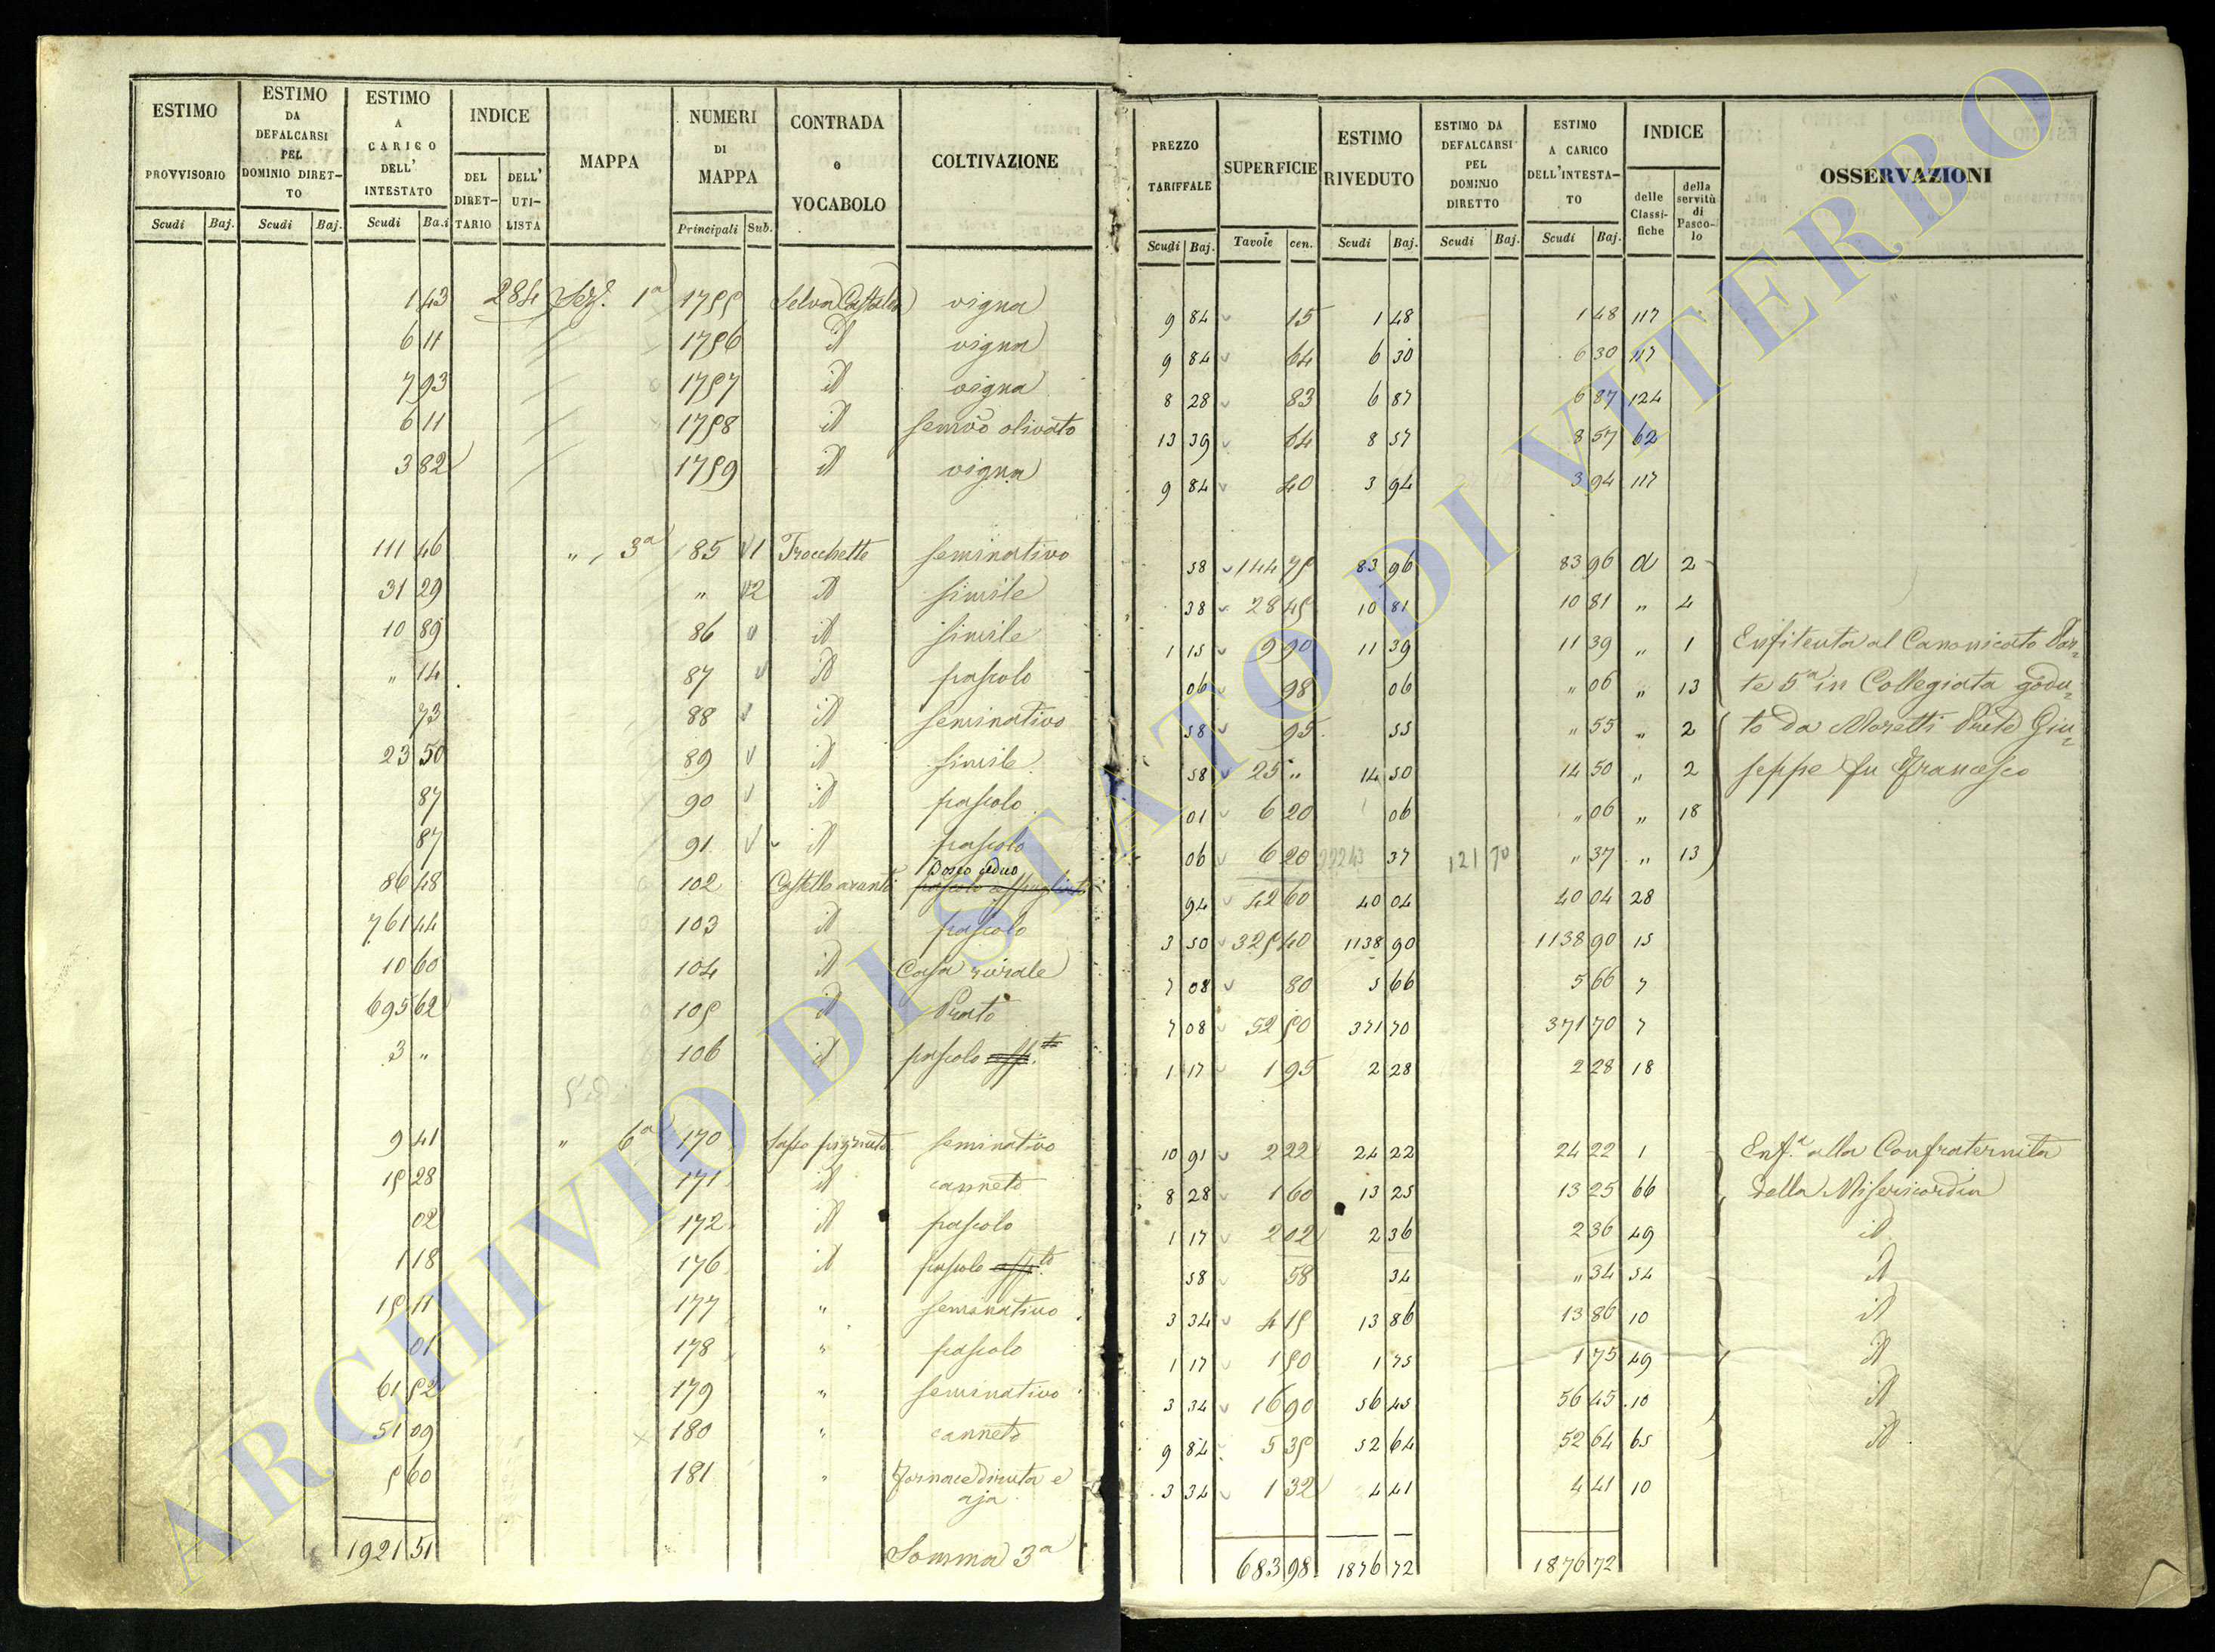 ESTIMO PROVVISORIO Scudi Baj.
ESTIMO DA DEFALCARSI PEL DOMINIO DIRET-TO Scudi Baj.
ESTIMO A CARICO DELL' INTESTATO Scudi Ba.i
INDICE DEL DIRET-TARIO DELL' UTI-LISTA
MAPPA
NUMERI DI MAPPA Principali Sub.
CONTRADA o VOCABOLO
COLTIVAZIONE
1 43 284 Sez.e 1a 1755 vigna
6 11 1756 id vigna
7 93 1757 id vigna
6 11 1758 id semvo olivato
3 82 1759 id vigna
111 46 " , 3a 85 1 Trocchette seminativo
31 29 " 2 id simile
10 89 86 id simile
" 14 87 id pascolo
73 88 id seminativo
23 50 89 id simile
87 90 id pascolo
87 91 id pascolo
Bosco ceduo
86 48 102 Castello avanti
761 44 103 id pascolo
10 60 104 id Casa rurale
695 62 105 id Prato
3 " 106 id pascolo
9 41 " 6a 170 Sasso pignato seminativo
15 28 171 id canneto
02 172 id pascolo
1 18 176 id pascolo
15 11 177 " seminativo
01 178 " pascolo
61 52 179 " seminativo
51 09 180 " canneto
5 60 181 " fornace diruta e
aja
1921 51 Somma 3a
PREZZO TARIFFALE Scudi Baj.
SUPERFICIE Tavole cen.
ESTIMO RIVEDUTO Scudi Baj.
ESTIMO DA DEFALCARSI PEL DOMINIO DIRETTO Scudi Baj.
ESTIMO A CARICO DELL'INTESTA-TO Scudi Baj.
INDICE delle Classi-fiche della servitù di Pasco-lo
OSSERVAZIONI
9 84 15 1 48 1 48 117
9 84 64 6 30 6 30 117
8 28 83 6 87 6 87 124
13 39 64 8 57 8 57 62
9 84 40 3 94 3 94 117
58 144 75 83 96 83 96 a 2
38 28 45 10 81 10 81 " 4
1 15 9 90 11 39 11 39 " 1 Enfiteuta al Canonicato Par=
06 98 06 " 06 " 13 te 5a in Collegiata godu=
58 95 55 " 55 " 2 to da Moretti Prete Giu=
58 25 " 14 50 14 50 " 2 seppe fu Francesco
01 6 20 06 " 06 " 18
06 6 20 37 121 70 " 37 " 13
94 42 60 40 04 40 04 28
3 50 325 40 1138 90 1138 90 15
7 08 80 5 66 5 66 7
7 08 52 50 371 70 371 70 7
1 17 1 95 2 28 2 28 18
10 91 2 22 24 22 24 22 1 Enf.a alla Confraternita
8 28 1 60 13 25 13 25 66 della Misericordia
1 17 2 02 2 36 2 36 49 id
58 58 34 " 34 54 id
3 34 4 15 13 86 13 86 10 id
1 17 1 50 1 75 1 75 49 id
3 34 16 90 56 45 56 45 10 id
9 84 5 35 52 64 52 64 65 id
3 34 1 32 4 41 4 41 10
683 98 1876 72 1876 72
ARCHIVIO DI STATO DI VITERBO